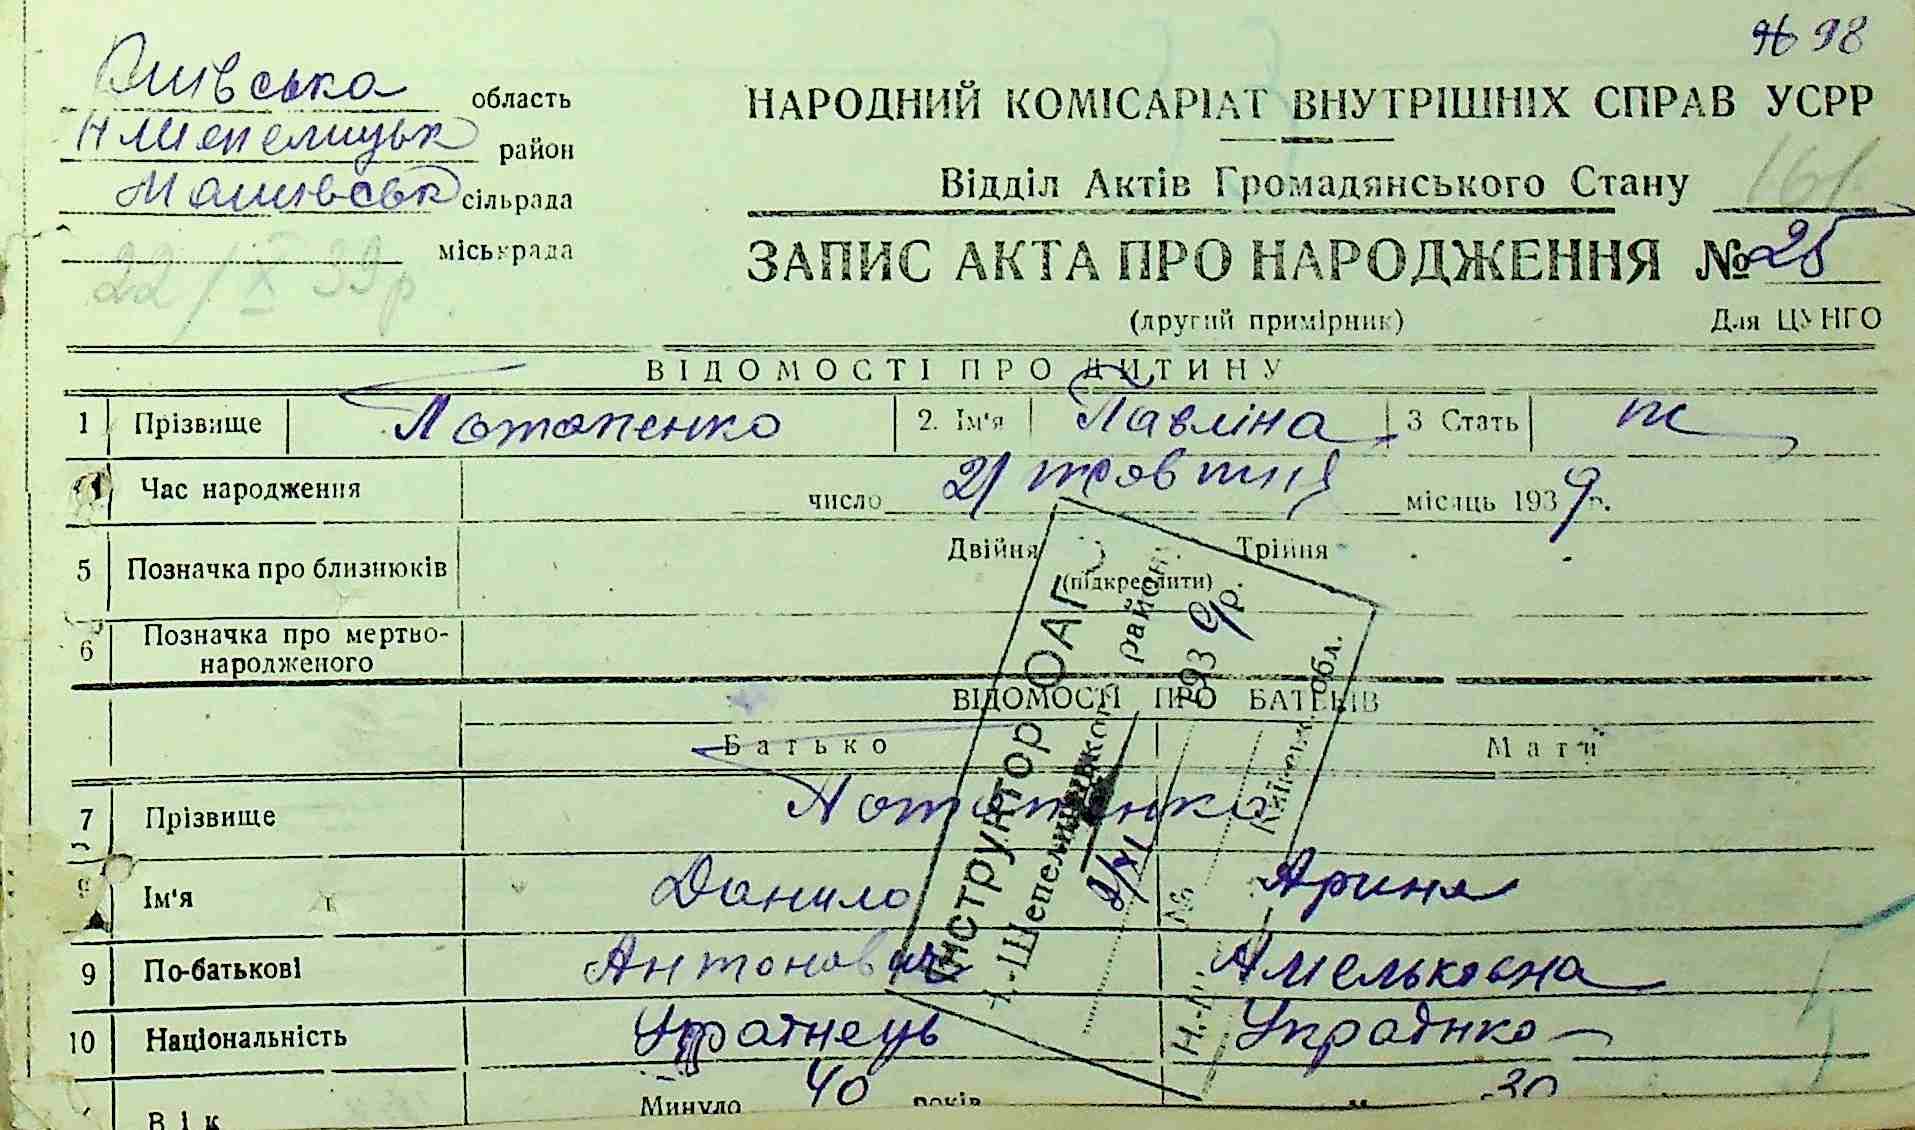 98
Київська область
НШепелицьк район
Машівськ сільрада
міськрада
22/X 39р
НАРОДНИЙ КОМІСАРІАТ ВНУТРІШНІХ СПРАВ УСРР
Відділ Актів Громадянського Стану 161
ЗАПИС АКТА ПРО НАРОДЖЕННЯ № 25
(другий примірник) Для ЦУНГО
ВІДОМОСТІ ПРО ДИТИНУ
1 Прізвище Потапенко 2. Ім'я Павліна 3 Стать ж
Час народження число 21 жовтня місяць 1939 р.
5 Позначка про близнюків Двійня Трійня
(підкреслити)
6 Позначка про мертво-
народженого
ВІДОМОСТІ ПРО БАТЬКІВ
Батько Мати
7 Прізвище Потапенко
Ім'я Данило Арина
9 По-батькові Антонович Амельковна
10 Національність Українець Українка
Вік Минуло 40 років 30
Інструктор ОАГ
Н.-Шепелицького району
2/XI 1939 р.
№
Н.-Ш. Київськ. обл.